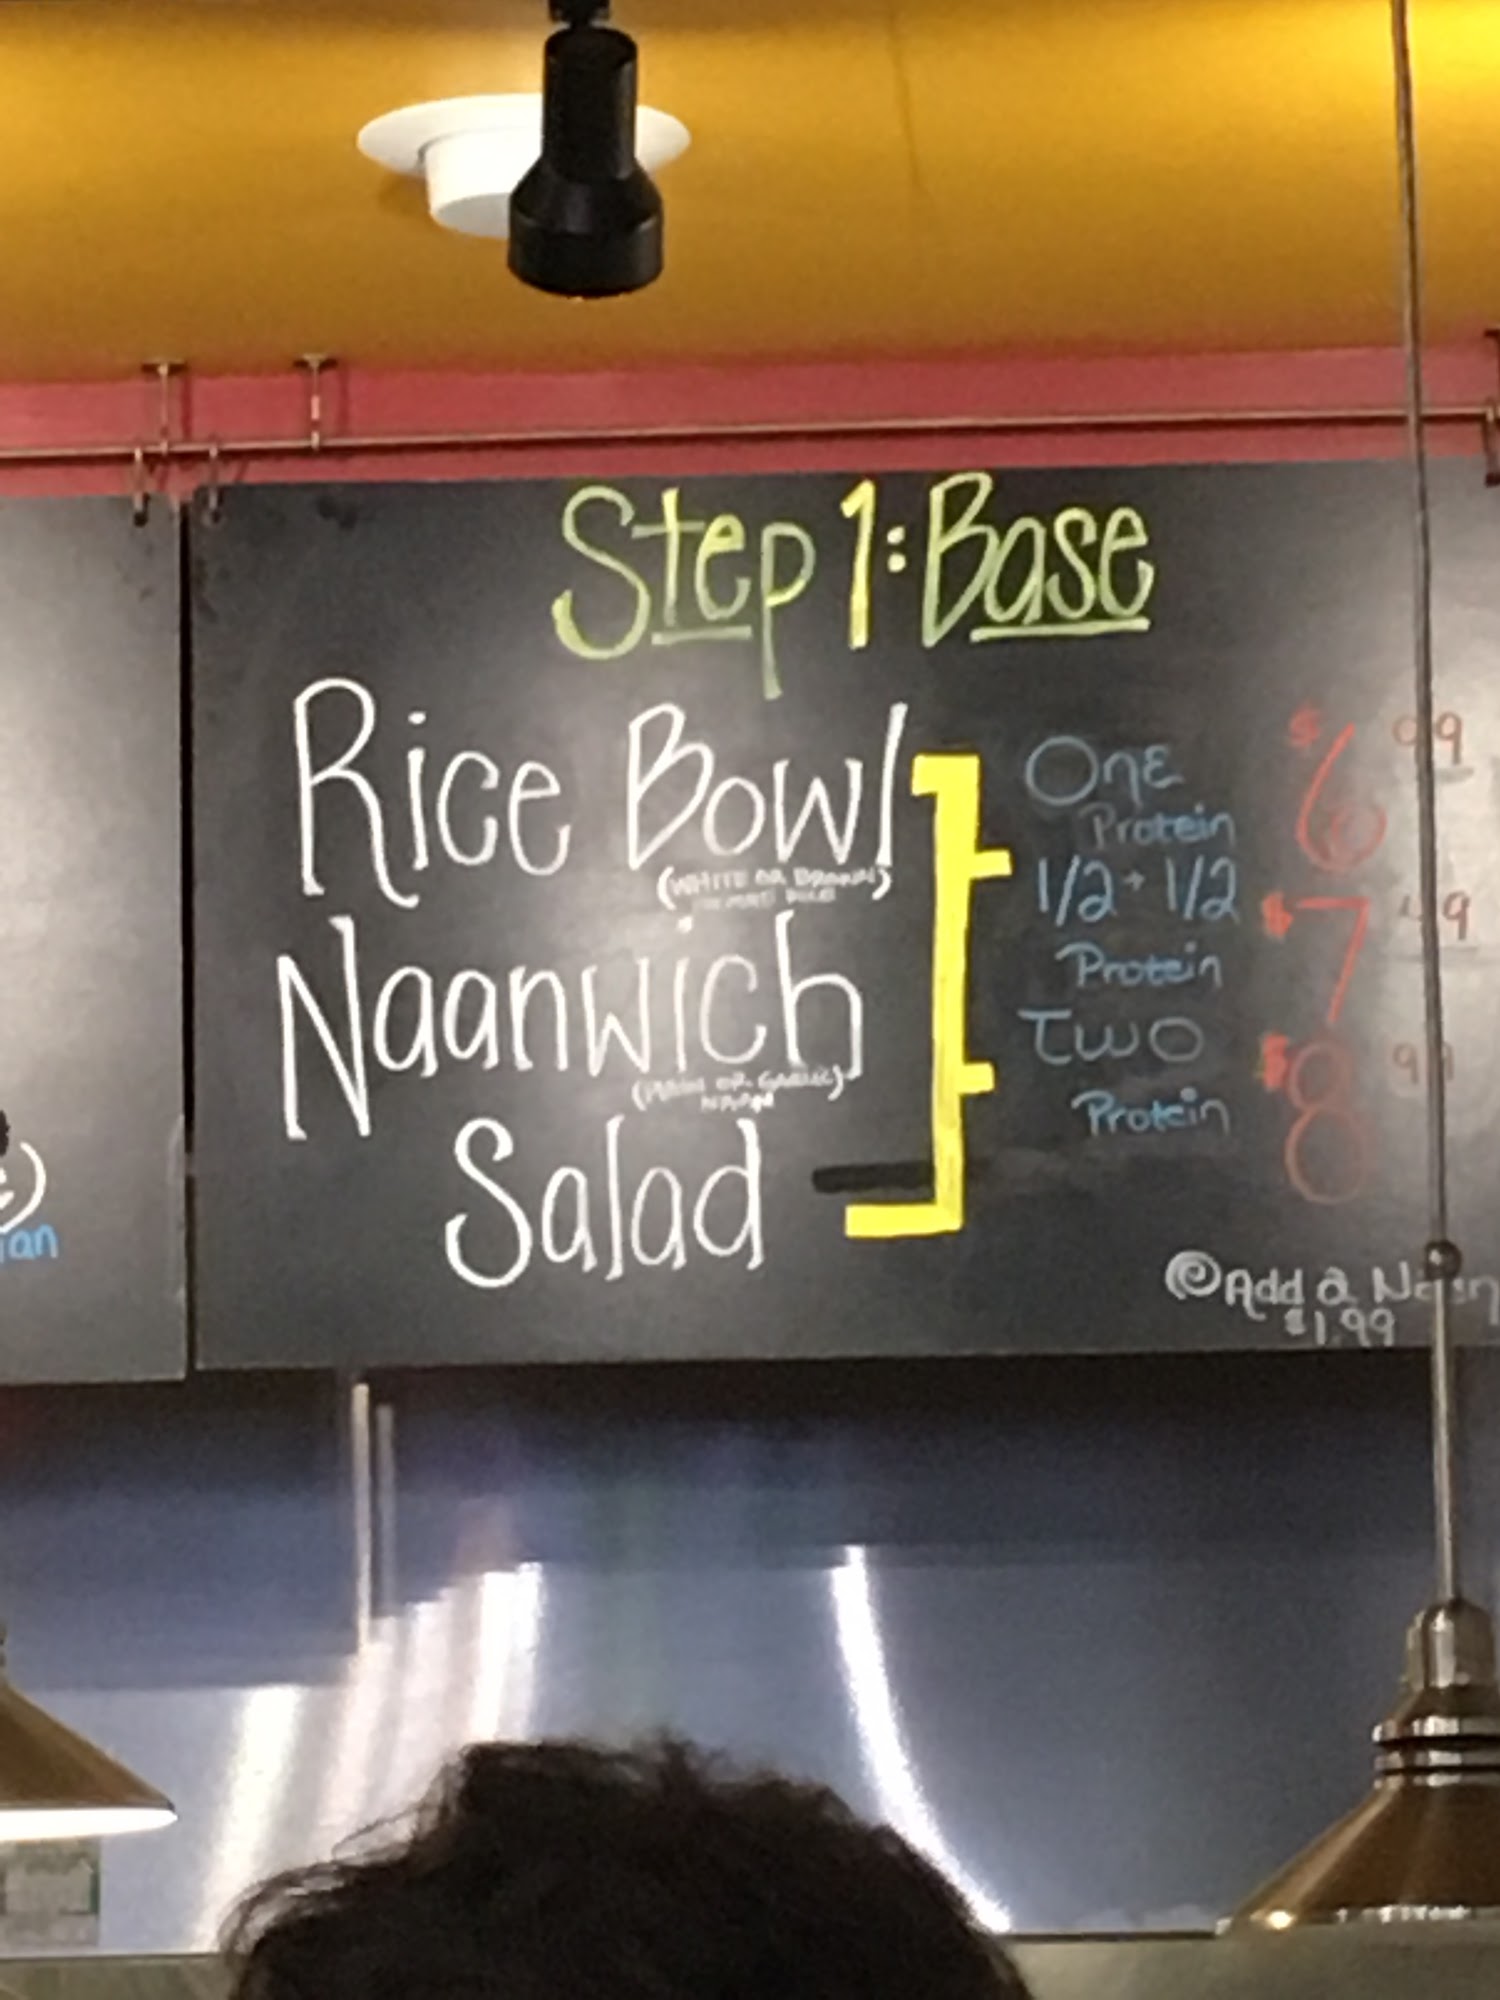 Step 1: Base
Rice Bowl
(WHITE OR BROWN)
Naanwich
(PLAIN OR GARLIC)
NAAN
Salad
One $6 99
Protein
1/2 + 1/2 $7
Protein
Two $8 99
Protein
Add a Naan
$1.99
ian